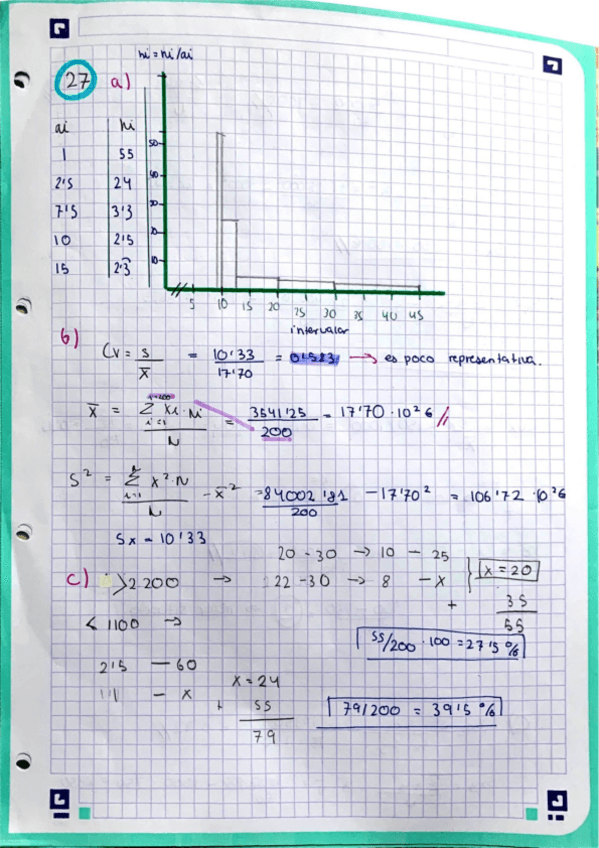 hi = ni/ai
27 a)
ai hi
1 55
2'5 24
7'5 3'3
10 2'5
15 2'3
50
40
30
20
10
5 10 15 20 25 30 35 40 45
intervalos
b)
CV = S/x̄ = 10'33/17'70 = 0'583 → es poco representativa.
x̄ = Σ xi·ni / N = 3541'25/200 = 17'70·10²€
S² = Σ x²·N / N - x̄² = 84002'81/200 - 17'70² = 106'72·10²€
Sx = 10'33
20 - 30 → 10 - 25
c) > 2.200 → 22 - 30 → 8 - x x = 20
+ 35
< 1100 → 55
55/200 · 100 = 27'5 %
2'5 - 60
1'1 - x x = 24
+ 55
79/200 = 39'5 %
79